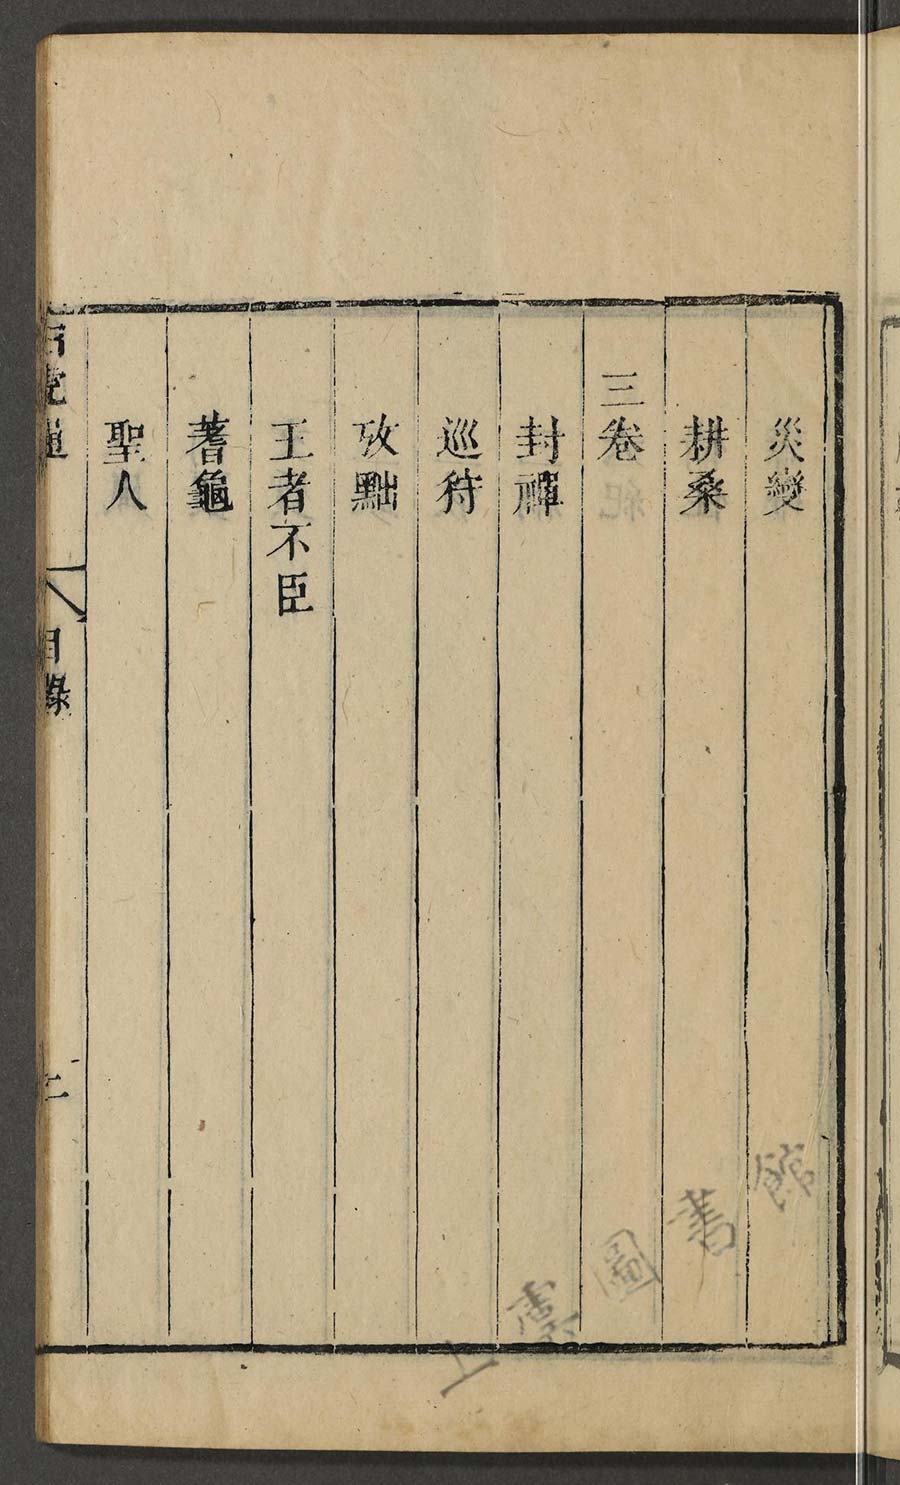 災變
耕桑
三卷
封禪
巡狩
攷黜
王者不臣
蓍龜
聖人
白虎通
目錄
二
上虞圖書館